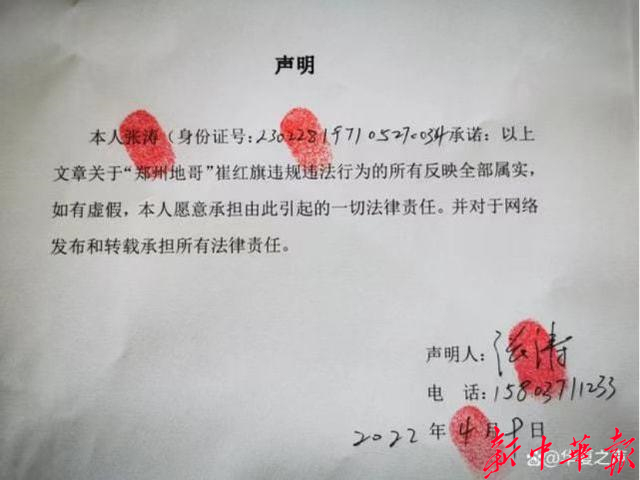 声明
本人张涛(身份证号:230228197105270034承诺:以上
文章关于“郑州地哥”崔红旗违规违法行为的所有反映全部属实,
如有虚假,本人愿意承担由此引起的一切法律责任。并对于网络
发布和转载承担所有法律责任。
声明人:张涛
电 话:15803711233
2022年4月 日
新中华报
华夏之声